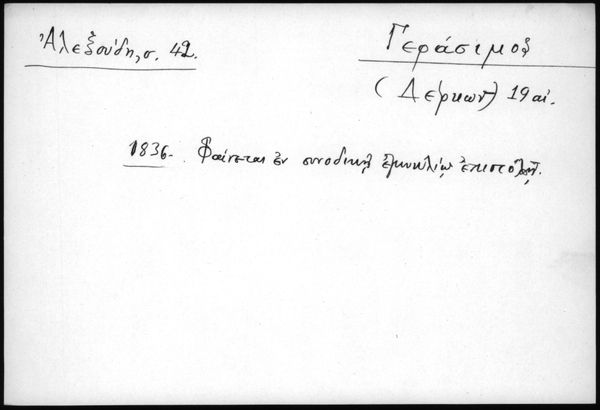 Ἀλεξούδη, σ. 42.
Γεράσιμος
(Δέρκων) 19 αἰ.
1836. Φαίνεται ἐν συνοδικῇ ἐγκυκλίῳ ἐπιστολῇ.